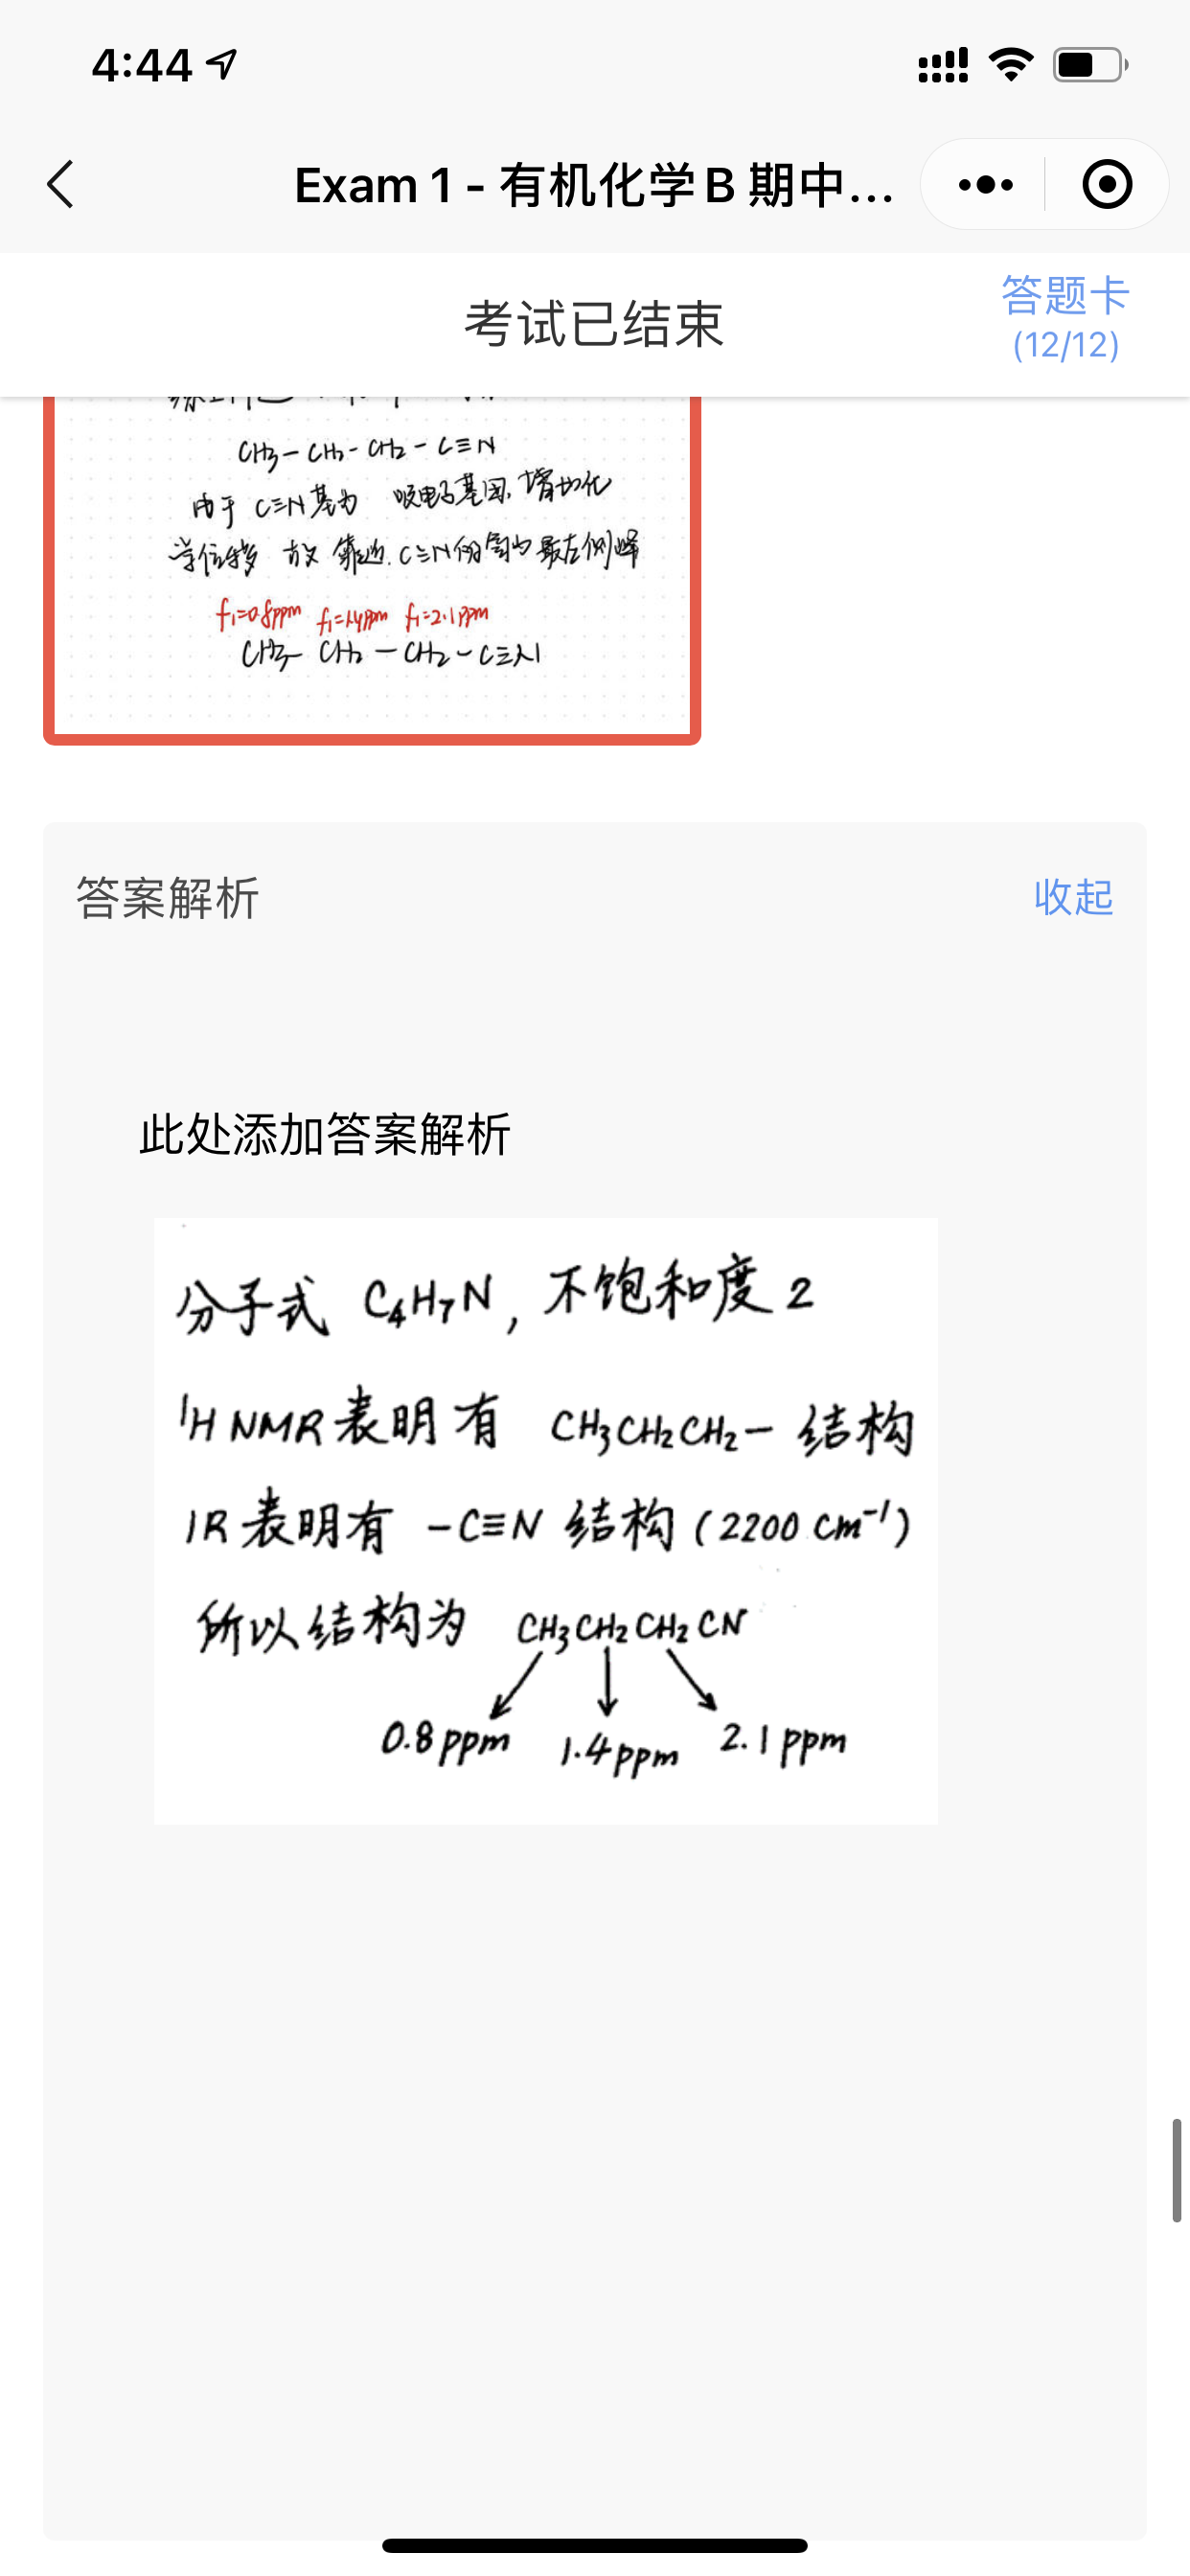 4:44
Exam 1 - 有机化学B 期中...
考试已结束
答题卡
(12/12)
CH₃-CH₂-CH₂-C≡N
由于 C≡N基为 吸电子基团, 增加化
学位移 故 靠近 C≡N侧 为最左侧峰
f₁=0.8ppm f₁=1.4ppm f₁=2.1ppm
CH₃-CH₂-CH₂-C≡N
答案解析
收起
此处添加答案解析
分子式 C₄H₇N, 不饱和度 2
¹H NMR表明有 CH₃CH₂CH₂- 结构
IR表明有 -C≡N 结构 (2200 cm⁻¹)
所以结构为 CH₃CH₂CH₂CN
0.8 ppm 1.4 ppm 2.1 ppm